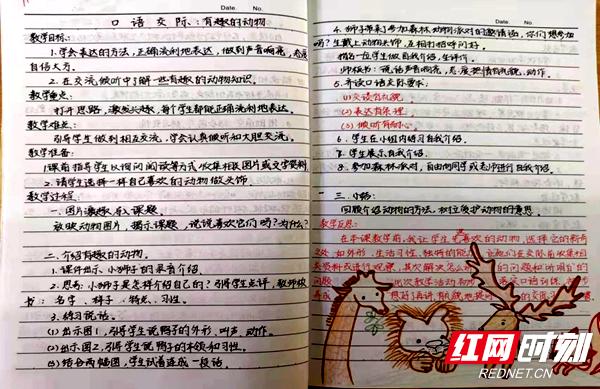 Date. No.
口语交际:有趣的动物
教学目标:
1.学会表达的方法,正确流利地表达,做到声音响亮,态度
自信大方。
2.在交流、倾听中了解一些有趣的动物知识。
教学重点:
打开思路,激发兴趣,每个学生都能正确流利地表达。
教学难点:
引导学生做到相互交流,学会认真倾听和大胆交流。
教学准备:
1.课前指导学生以询问阅读等方式收集相关图片或文字资料
2.请学生选择一样自己喜欢的动物做头饰
教学过程:
一、图片激趣,引入课题。
放映动物图片,揭示课题,说说喜欢它们吗?为什么?
二、介绍有趣的动物。
1.课件出示小狮子的录音介绍
2.思考:小狮子是怎样介绍自己的?引导学生点评,教师板
书:名字、样子、特点、习性。
3.练习说话。
(1)出示图1,引导学生说鸭子的外形、叫声、动作。
(2)出示图2,引导学生说鸭子的本领和习性。
(3)结合两幅图,学生试着连成一段话。
Date. No.
4.狮子带来了参加森林动物派对的邀请函,你们想参加
吗?生戴上动物头饰,互相打招呼问好。
指名一位学生做自我介绍,生评价。
师板书:说话声音响亮,态度
5.升读口语交际要求:
(1)交谈有礼貌
(2)表达有条理
(3)倾听有耐心。
6.学生在小组内练习自我介绍。
7.学生展示自我介绍。
8.参加森林派对,自由向同学或老师进行自我介绍。
三、小结:
回顾介绍动物的方法,树立爱护动物的意思。
教学反思:
在本课教学前,我让学生 喜欢的动物,选择它的新奇
之处,如外形、生活习性、独特的 他们在交际前收集相
关资料或进行观察,其次解决怎么 的问题和听明白的
问题 出次教学活动
红网时刻
REDNET.CN